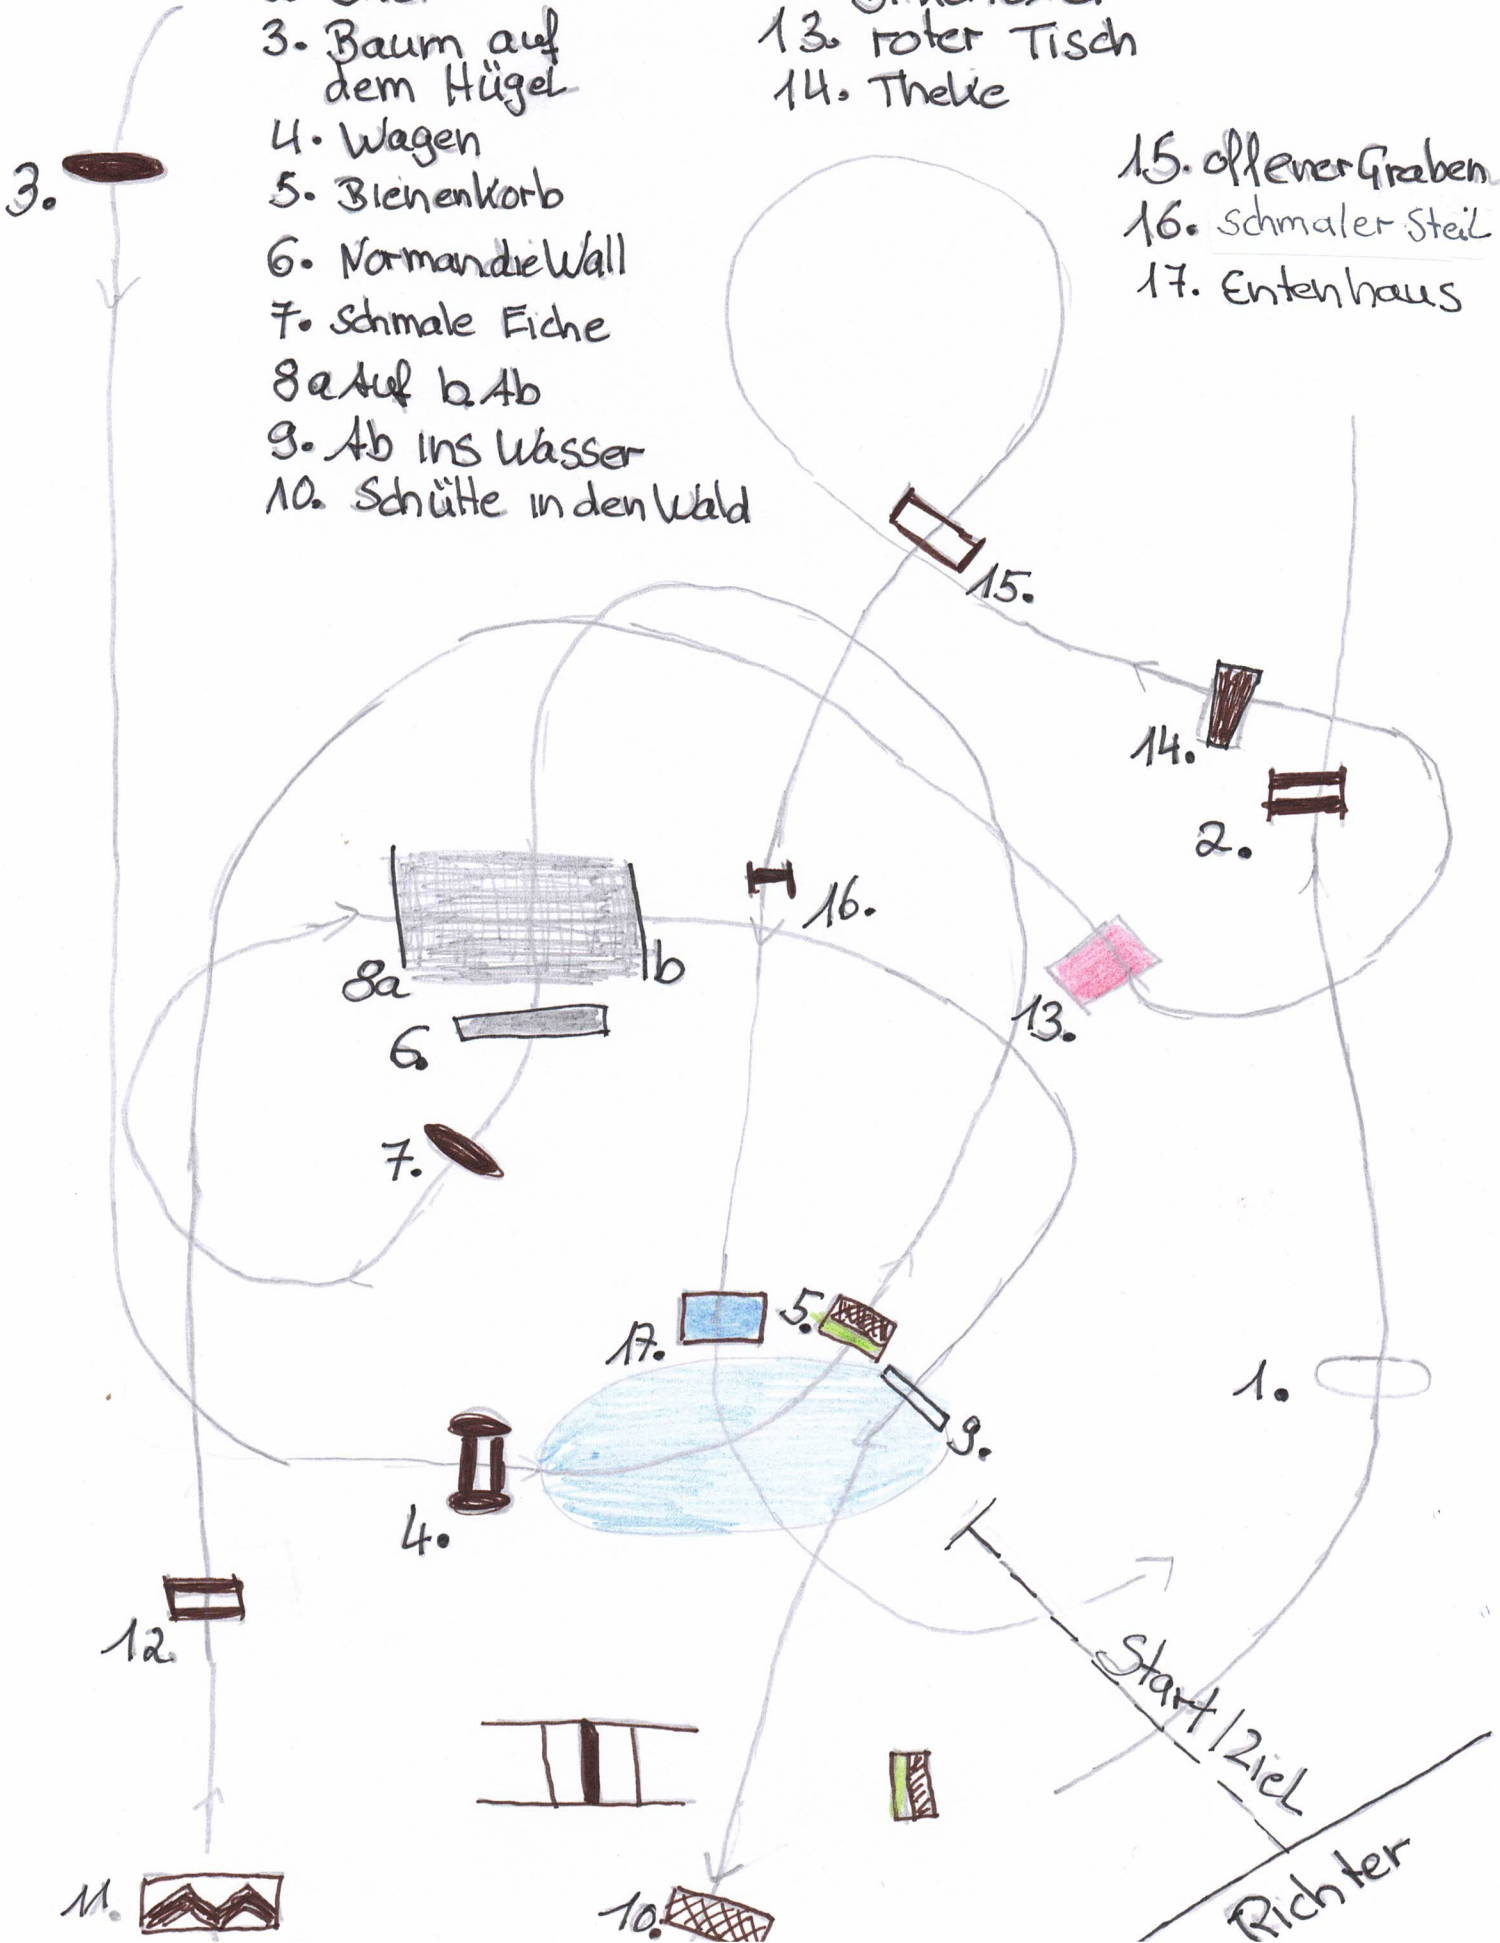 3. Baum auf
dem Hügel
4. Wagen
5. Bienenkorb
6. NormandieWall
7. Schmale Eiche
8a Auf b. Ab
9. Ab ins Wasser
10. Schütte in den Wald
13. roter Tisch
14. Theke
15. offener Graben
16. schmaler Steil
17. Entenhaus
3.
15.
14.
2.
16.
8a
b
13.
6.
7.
17.
5.
1.
9.
4.
12.
Start/Ziel
11.
10.
Richter